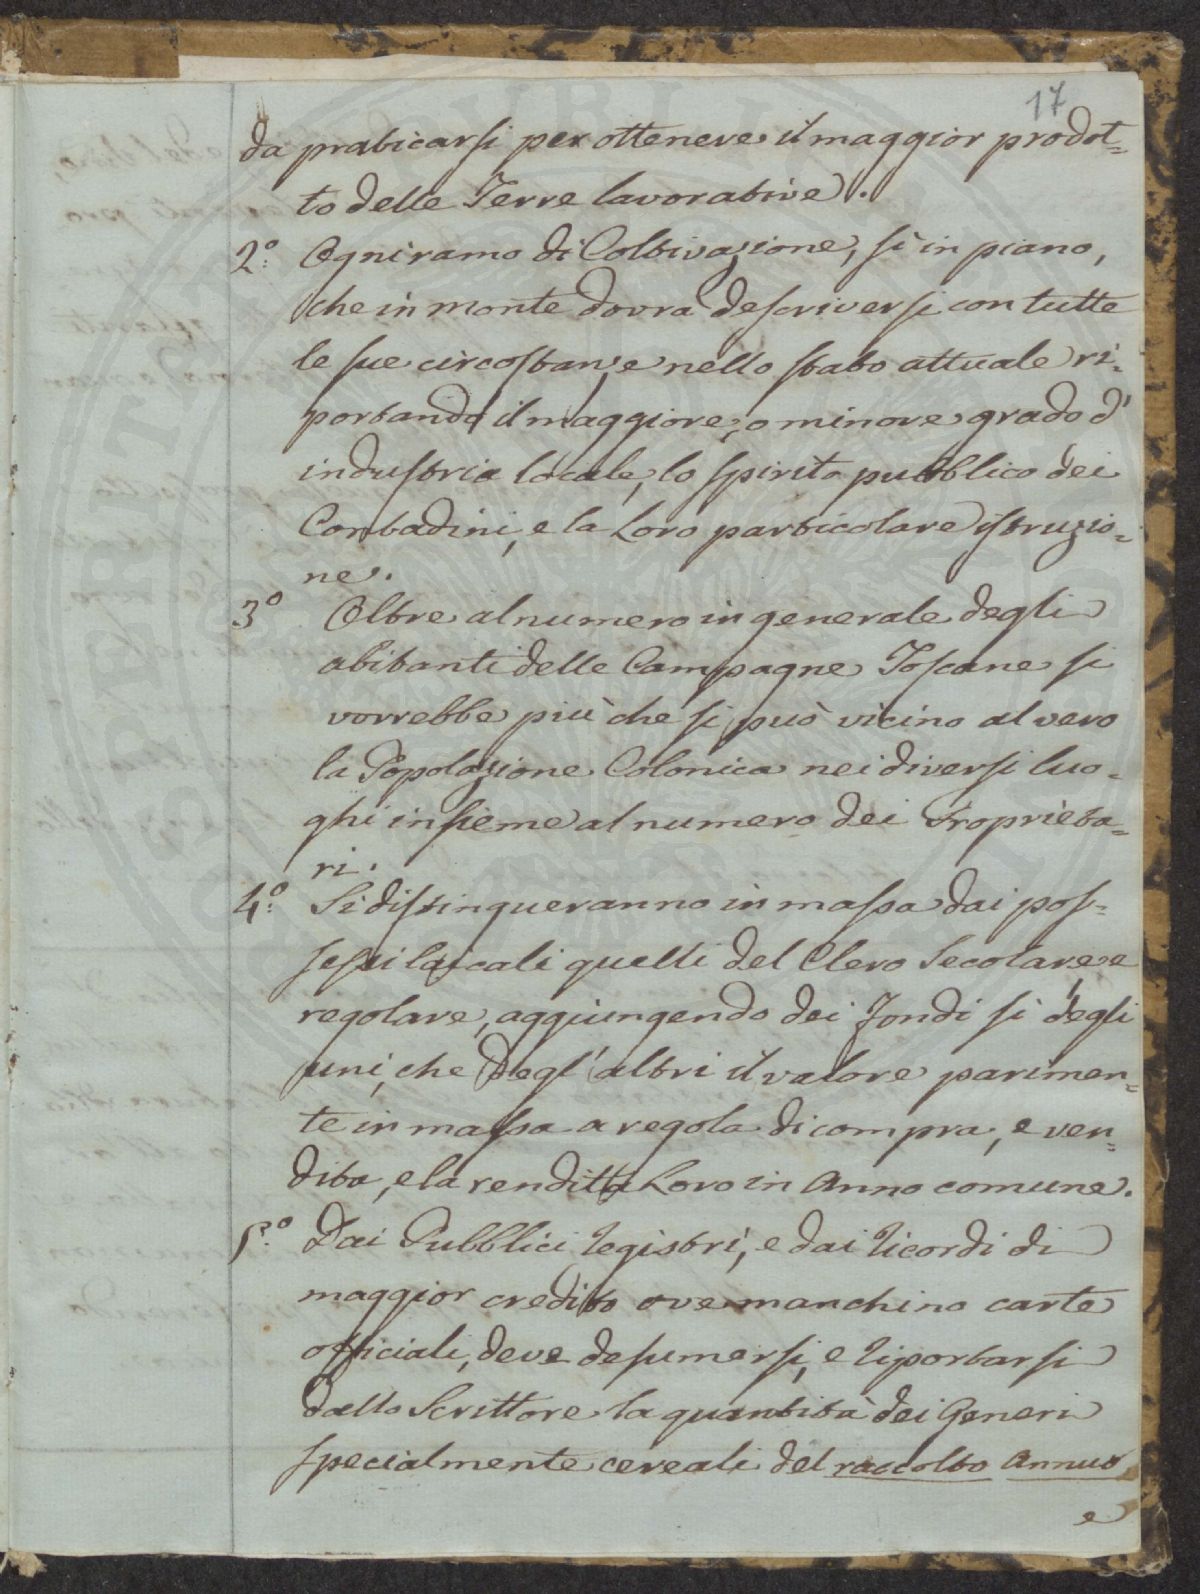 17
da praticarsi per ottenere il maggior prodot=
to delle Terre lavorative.
2.° Ogni ramo di Coltivazione, sì in piano,
che in monte dovrà descriversi con tutte
le sue circostanze nello stato attuale ri=
portando il maggiore, o minore grado d'
industria locale, lo spirito pubblico dei
Contadini, e la Loro particolare istruzio=
ne.
3° Oltre al numero in generale degli
abitanti delle Campagne Toscane si
vorrebbe più che si può vicino al vero
la Popolazione Colonica nei diversi luo=
ghi insieme al numero dei Proprieta=
ri.
4.° Si distingueranno in massa dai pos=
sessi laicali quelli del Clero Secolare, e
regolare, aggiungendo dei fondi sì degli
uni, che degl'altri il valore parimen=
te in massa a regola di compra, e ven=
dita, e la rendita Loro in Anno comune.
5.° Dai Pubblici Registri, e dai Ricordi di
maggior credito ove manchino carte
officiali, deve desumersi, e Riportarsi
dallo Scrittore la quantità dei Generi
specialmente cereali del raccolto Annuo
e